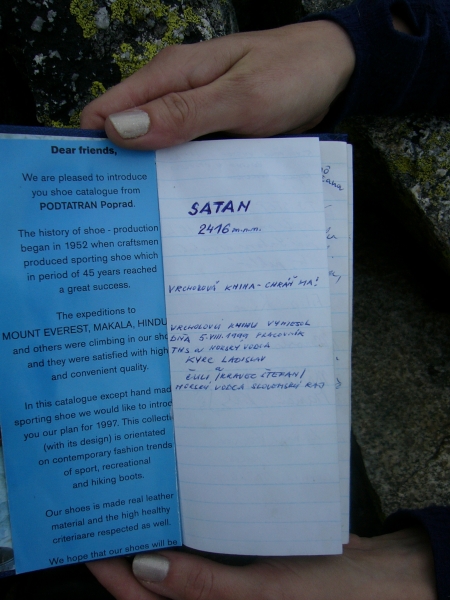 Dear friends,
We are pleased to introduce
you shoe catalogue from
PODTATRAN Poprad.
The history of shoe - production
began in 1952 when craftsmen
produced sporting shoe which
in period of 45 years reached
a great success.
The expeditions to
MOUNT EVEREST, MAKALA, HINDU
and others were climbing in our sho
and they were satisfied with high
and convenient quality.
In this catalogue except hand mad
sporting shoe we would like to introd
you our plan for 1997. This collecti
(with its design) is orientated
on contemporary fashion trends
of sport, recreational
and hiking boots.
Our shoes is made real leather
material and the high healthy
criteriaare respected as well.
We hope that our shoes will be
SATAN
2416 m.n.m.
VRCHOLOVÁ KNIHA - CHRÁŇ MA!
VRCHOLOVÚ KNIHU VYNIESOL
DŇA 5.VIII.1999 PRACOVNÍK
A HORSKÝ VODCA
KYRC LADISLAV
a
ČULI /KRAVEC ŠTEFAN/
VODCA SLOVENSKÝ RAJ